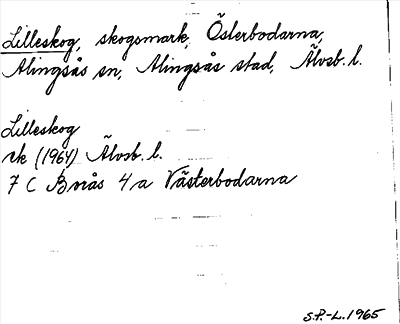 Lilleskog, skogsmark, Österbodarna,
Alingsås sn, Alingsås stad, Älvsb. l.
Lilleskog
ek (1964) Älvsb. l.
7 C Borås 4a Västerbodarna
S.P.-L. 1965